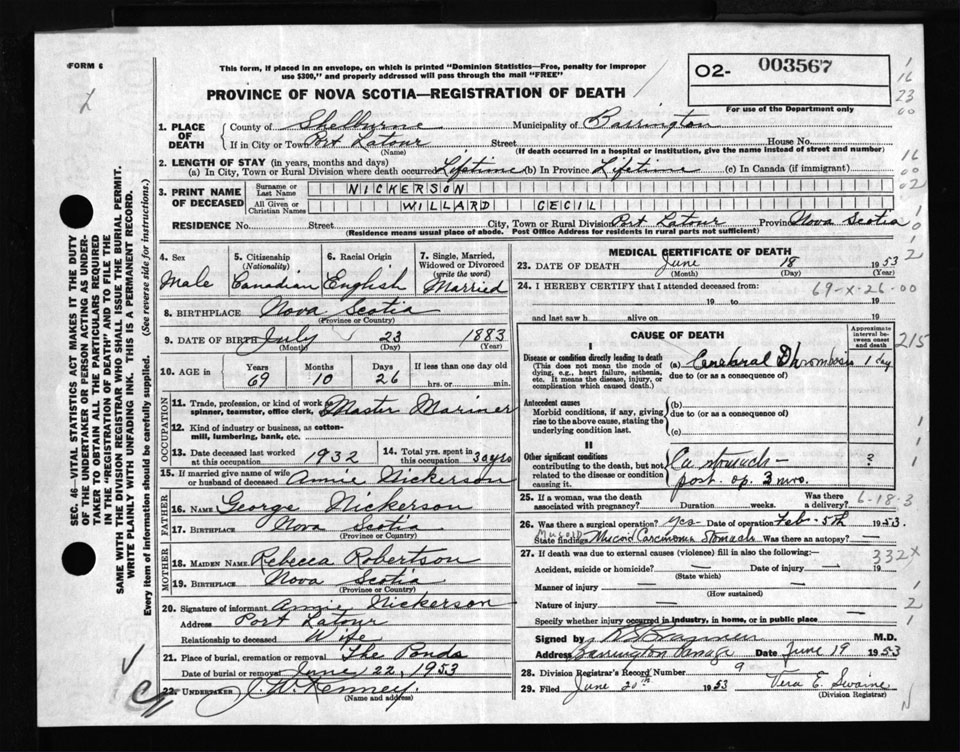 FORM 6
This form, if placed in an envelope, on which is printed "Dominion Statistics—Free, penalty for improper
use $300," and properly addressed will pass through the mail "FREE"
02- 003567
For use of the Department only
PROVINCE OF NOVA SCOTIA—REGISTRATION OF DEATH
1. PLACE OF DEATH
County of Shelburne Municipality of Barrington
If in City or Town Port Latour Street House No.
(Name) (If death occurred in a hospital or institution, give the name instead of street and number)
2. LENGTH OF STAY (in years, months and days)
(a) In City, Town or Rural Division where death occurred Lifetime (b) In Province Lifetime (c) In Canada (if immigrant)
3. PRINT NAME OF DECEASED
Surname or Last Name NICKERSON
All Given or Christian Names WILLARD CECIL
RESIDENCE No. Street City, Town or Rural Division Port Latour Province Nova Scotia
(Residence means usual place of abode. Post Office Address for residents in rural parts not sufficient)
4. Sex Male
5. Citizenship (Nationality) Canadian
6. Racial Origin English
7. Single, Married, Widowed or Divorced (write the word) Married
8. BIRTHPLACE Nova Scotia
(Province or Country)
9. DATE OF BIRTH July 23 1883
(Month) (Day) (Year)
10. AGE in Years Months Days If less than one day old
69 10 26 hrs. or min.
OCCUPATION
11. Trade, profession, or kind of work as spinner, teamster, office clerk, etc. Master Mariner
12. Kind of industry or business, as cotton-mill, lumbering, bank, etc.
13. Date deceased last worked at this occupation 1932
14. Total yrs. spent in this occupation 30 yrs
15. If married give name of wife or husband of deceased Annie Nickerson
FATHER
16. Name George Nickerson
17. Birthplace Nova Scotia
(Province or Country)
MOTHER
18. Maiden Name Rebecca Robertson
19. Birthplace Nova Scotia
(Province or Country)
20. Signature of informant Annie Nickerson
Address Port Latour
Relationship to deceased Wife
21. Place of burial, cremation or removal The Ponds
Date of burial or removal June 22, 1953
22. Undertaker J. W. Kenney.
(Name and address)
MEDICAL CERTIFICATE OF DEATH
23. DATE OF DEATH June 18 1953
(Month) (Day) (Year)
24. I HEREBY CERTIFY that I attended deceased from: 69-X-26-00
19 to 19
and last saw h alive on 19
CAUSE OF DEATH
Approximate interval between onset and death
I
Disease or condition directly leading to death
(This does not mean the mode of dying, e.g., heart failure, asthenia, etc. It means the disease, injury, or complication which caused death.)
(a) Cerebral Thrombosis 1 day
due to (or as a consequence of)
Antecedent causes
Morbid conditions, if any, giving rise to the above cause, stating the underlying condition last.
(b)
due to (or as a consequence of)
(c)
II
Other significant conditions
contributing to the death, but not related to the disease or condition causing it.
Ca stomach — ?
post. op. 3 mos.
25. If a woman, was the death associated with pregnancy? Duration weeks. Was there a delivery? 6-18-3
26. Was there a surgical operation? yes Date of operation Feb. 5th 1953.
State findings MUCOID Mucoid Carcinoma stomach Was there an autopsy? —
27. If death was due to external causes (violence) fill in also the following:— 332X
Accident, suicide or homicide? — Date of injury — 19
(State which)
Manner of injury —
(How sustained)
Nature of injury —
Specify whether injury occurred in industry, in home, or in public place
Signed by M.D.
Address Barrington Passage Date June 19 1953
28. Division Registrar's Record Number 9
29. Filed June 20th 1953 Vera E. Swaine
(Division Registrar)
SEC. 46—VITAL STATISTICS ACT MAKES IT THE DUTY
OF THE UNDERTAKER OR PERSON ACTING AS UNDER-
TAKER TO OBTAIN ALL THE PARTICULARS REQUIRED
IN THE "REGISTRATION OF DEATH" AND TO FILE THE
SAME WITH THE DIVISION REGISTRAR WHO SHALL ISSUE THE BURIAL PERMIT.
WRITE PLAINLY WITH UNFADING INK. THIS IS A PERMANENT RECORD.
Every item of information should be carefully supplied. (See reverse side for instructions.)